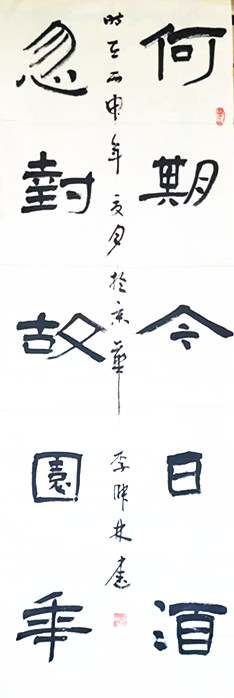 何期今日酒
忽對故園年
時在丙申年亥月於京華 李林書